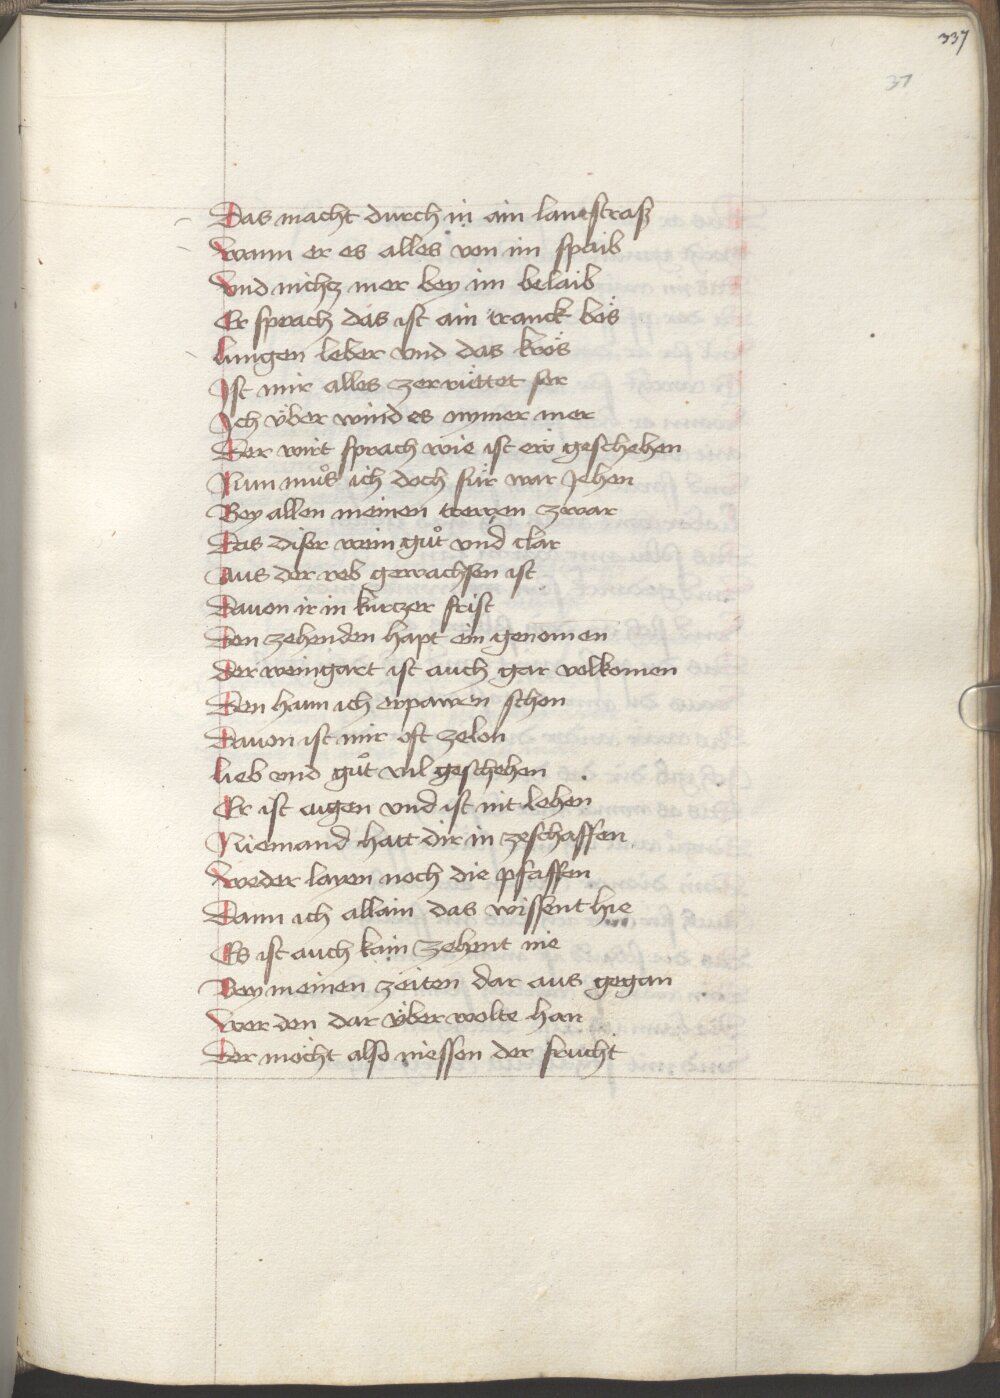 337
37
Das macht durch in ain lantstraß
Wann er es alles von im spaib
Vnd nichtz mer bey im belaib
Er sprach das ist ain tranck bös
Lungen leber vnd das krös
Ist mir alles zerrüttet ser
Ich v̈ber wind es nymer mer
Der wirt sprach wie ist ew geschehen
Nun muͦs ich doch für war Jehen
Bey allen meinen trewen zwar
Das diser wein guͦt vnd clar
Aus der reb gewachsen ist
Dauon ir in kurczer frist
Den zehenden hapt ein genomen
Der weingart ist auch gar volkomen
Den hann ich erpawen schon
Dauon ist mir oft ze lon
Lieb vnd guͦt vil geschehen
Er ist aigen vnd ist nit lehen
Niemand hatt dir in zeschaffen
Weder layen noch die pfaffen
Dann ich allain das wissent hie
Es ist auch kain zehent nie
Bey meinen zeiten dar aus gegan
Wer den dar v̈ber wolte han
Der möcht also niessen der frucht